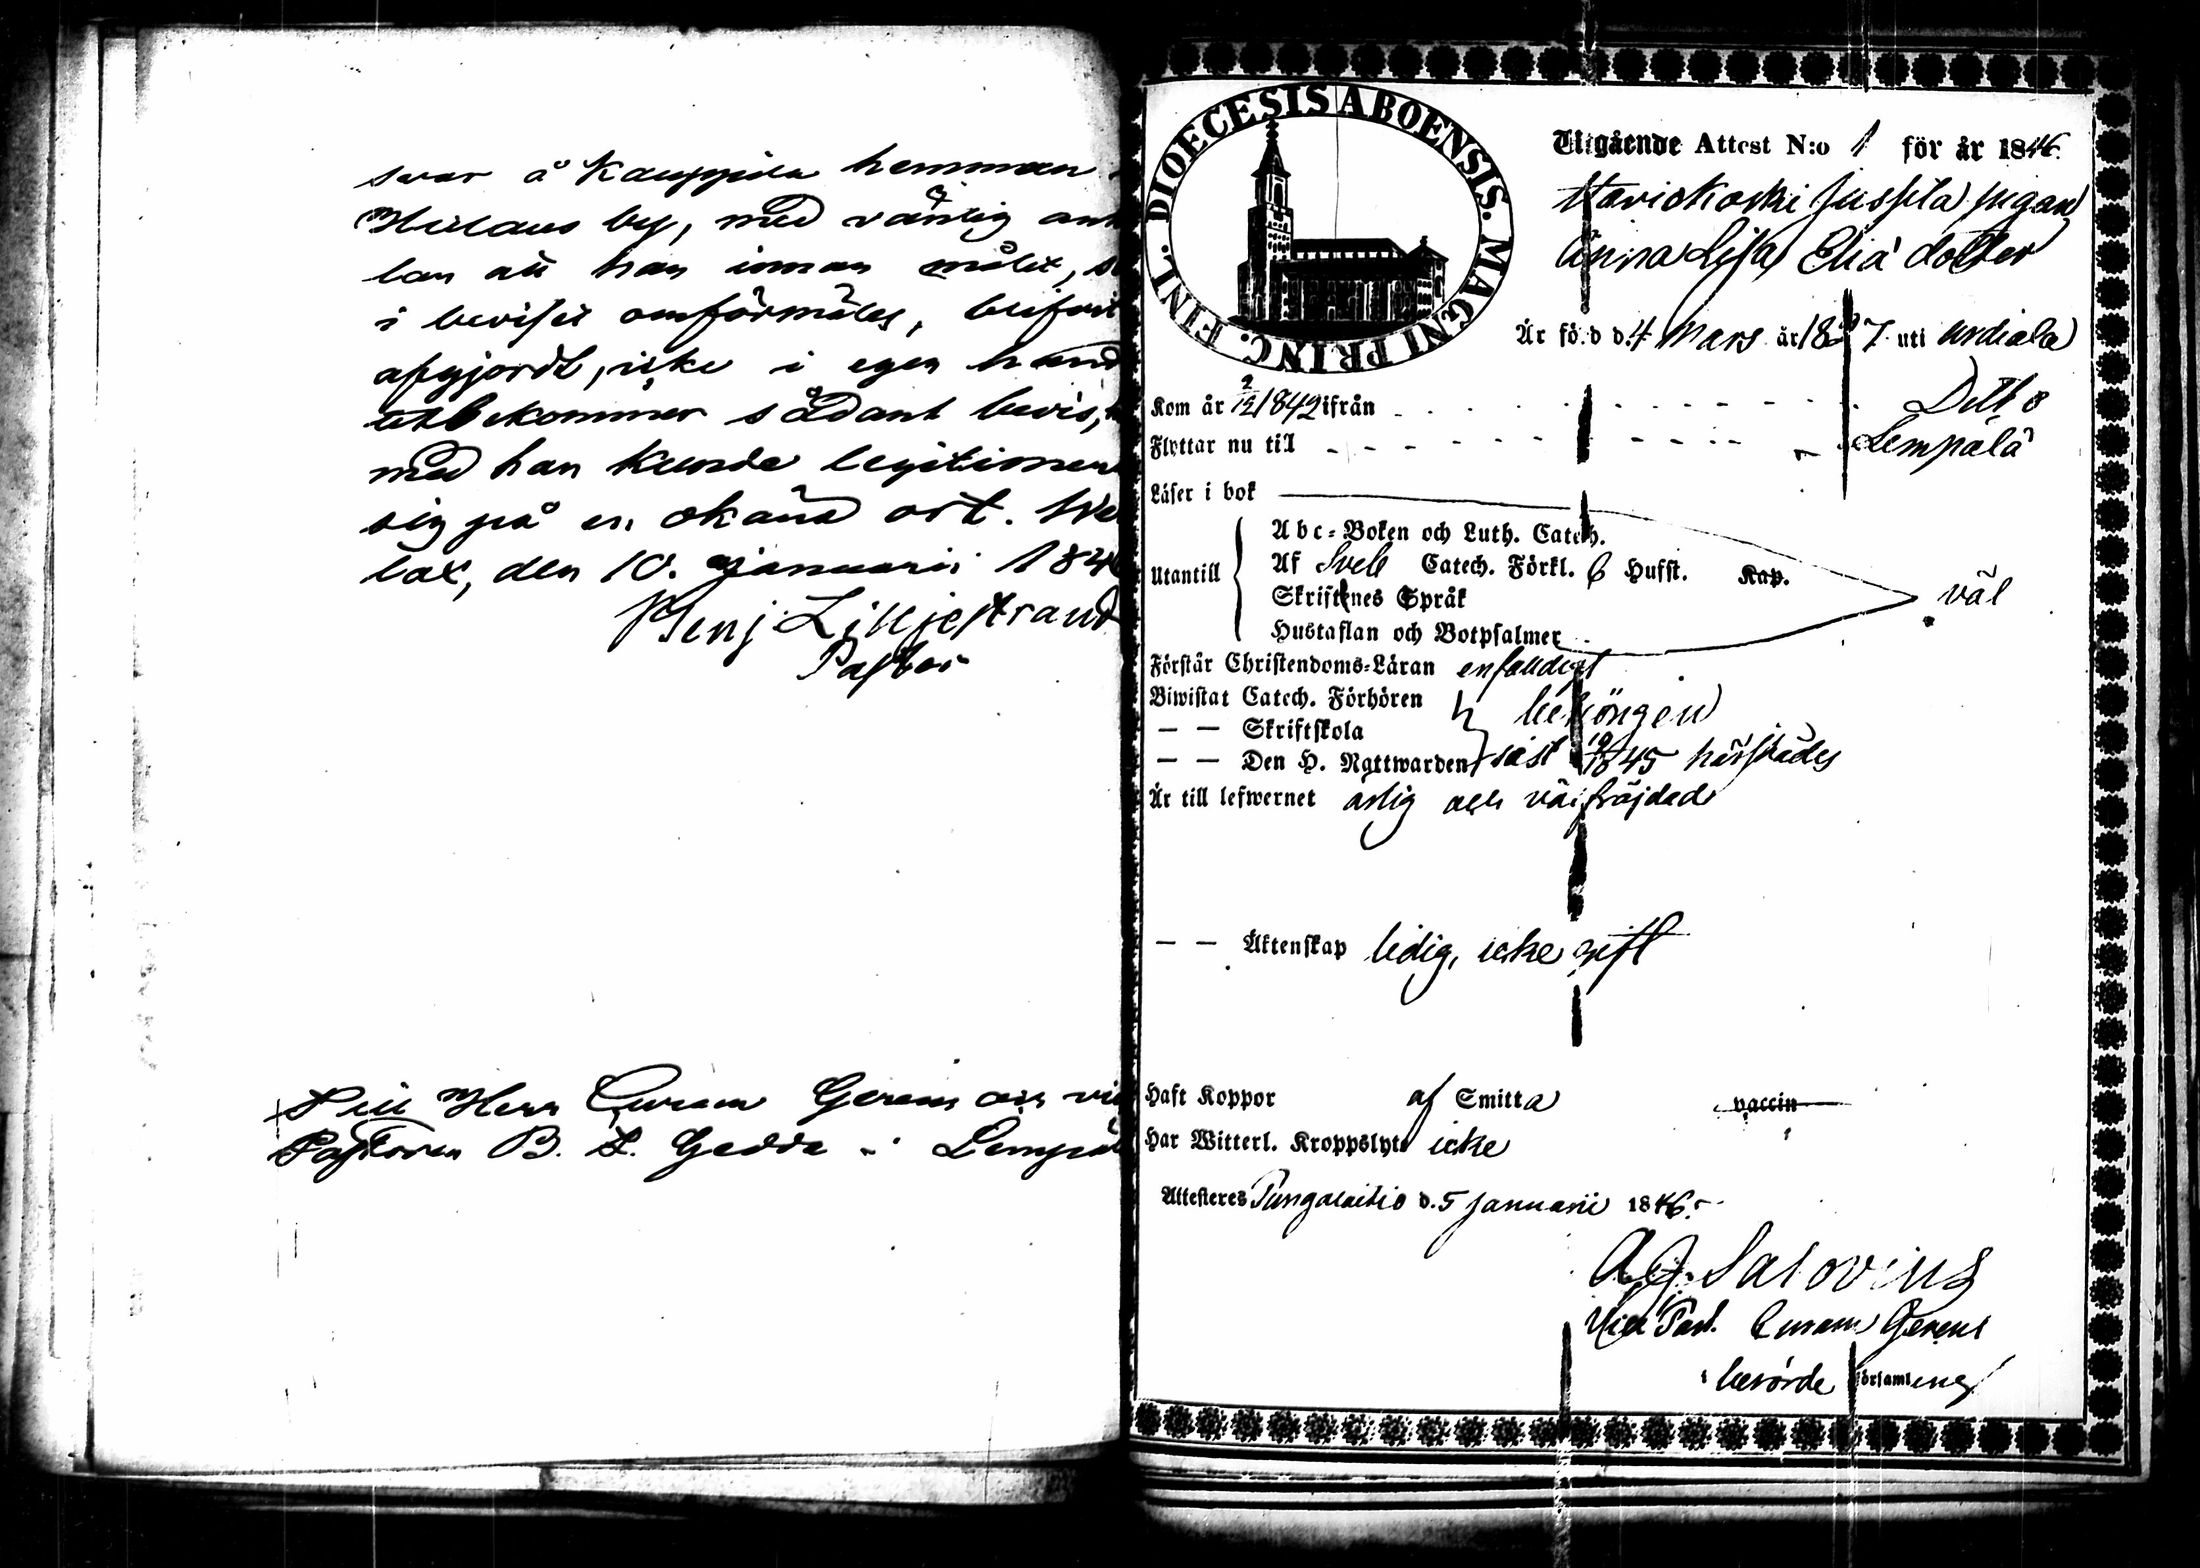 svar å Kauppila hemman
by, med vänlig
lan att han innan målet,
i beviset omförmäles, blifvit
afgjordt, icke i egen hand
utbekommer sådant bevis,
med han kunde legitimera
sig på en okänd ort.
lax, den 10. januarii 184
Benj. Lilljestrand
Pastor
Till Herr Curam Gerens och
Pastoren B. Gedda i Lempäl
DIOECESIS ABOENSIS. MAGNI PRINC. FINL.
Utgående Attest N:o 1 för år 1846.
Jussila pigan
Anna Lisa Elia dotter
Är född d. 4 Mars år 1827 uti Urdiala
Kom år 2/12 1842 ifrån Ditto
Flyttar nu till Lempälä
Läser i bok
Abc-Boken och Luth. Catech.
Utantill Af Sveb Catech. Förkl. 6 Hufst. Kap. väl
Skriftenes Språk
Hustaflan och Botpsalmer
Förstår Christendoms-Läran enfaldigt
Biwistat Catech. Förhören behörigen
— — Skriftskola
— — Den H. Nattwarden sist 19/10 45 härstädes
Är till lefwernet ärlig och väl fräjdad
— — Äktenskap ledig, icke gift
Haft Koppor af Smitta vaccin
Har Witterl. Kroppslyte icke
Attesteres Pungalaitio d. 5 Januarii 1846.
A. J. Salovius
Vice Past. Curam Gerens
i berörde församling